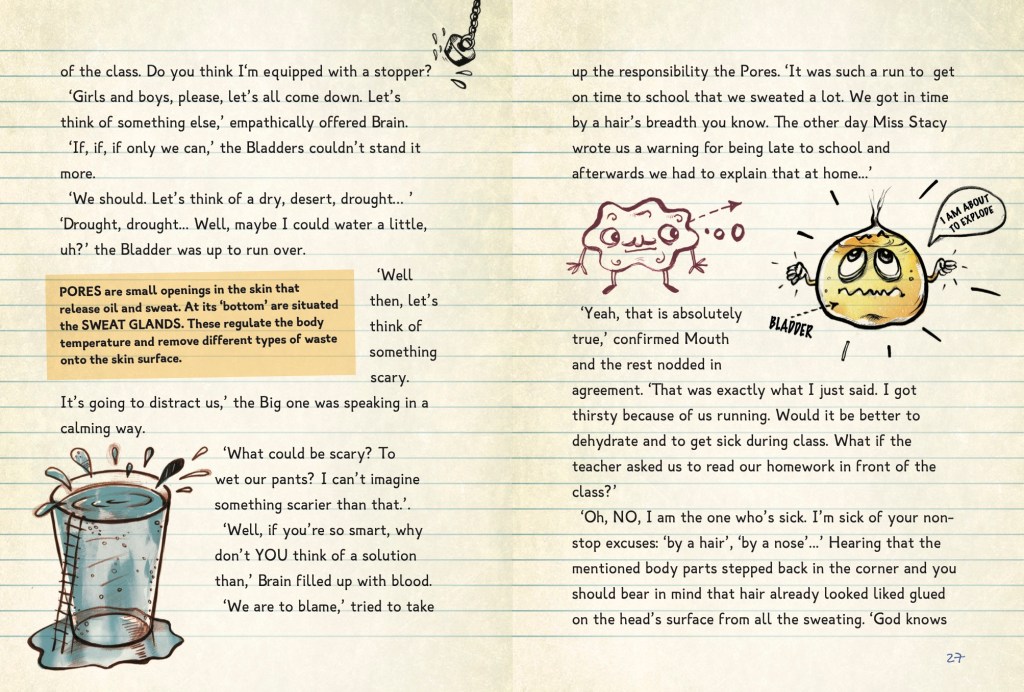 of the class. Do you think I‘m equipped with a stopper?
‘Girls and boys, please, let’s all come down. Let’s
think of something else,’ empathically offered Brain.
‘If, if, if only we can,’ the Bladders couldn’t stand it
more.
‘We should. Let’s think of a dry, desert, drought... ’
‘Drought, drought... Well, maybe I could water a little,
uh?’ the Bladder was up to run over.
‘Well
then, let’s
think of
something
scary.
PORES are small openings in the skin that
release oil and sweat. At its ‘bottom’ are situated
the SWEAT GLANDS. These regulate the body
temperature and remove different types of waste
onto the skin surface.
It’s going to distract us,’ the Big one was speaking in a
calming way.
‘What could be scary? To
wet our pants? I can’t imagine
something scarier than that.’.
‘Well, if you’re so smart, why
don’t YOU think of a solution
than,’ Brain filled up with blood.
‘We are to blame,’ tried to take
up the responsibility the Pores. ‘It was such a run to get
on time to school that we sweated a lot. We got in time
by a hair’s breadth you know. The other day Miss Stacy
wrote us a warning for being late to school and
afterwards we had to explain that at home...’
I AM ABOUT
TO EXPLODE
BLADDER
‘Yeah, that is absolutely
true,’ confirmed Mouth
and the rest nodded in
agreement. ‘That was exactly what I just said. I got
thirsty because of us running. Would it be better to
dehydrate and to get sick during class. What if the
teacher asked us to read our homework in front of the
class?’
‘Oh, NO, I am the one who’s sick. I’m sick of your non-
stop excuses: ‘by a hair’, ‘by a nose’...’ Hearing that the
mentioned body parts stepped back in the corner and you
should bear in mind that hair already looked liked glued
on the head’s surface from all the sweating. ‘God knows
27